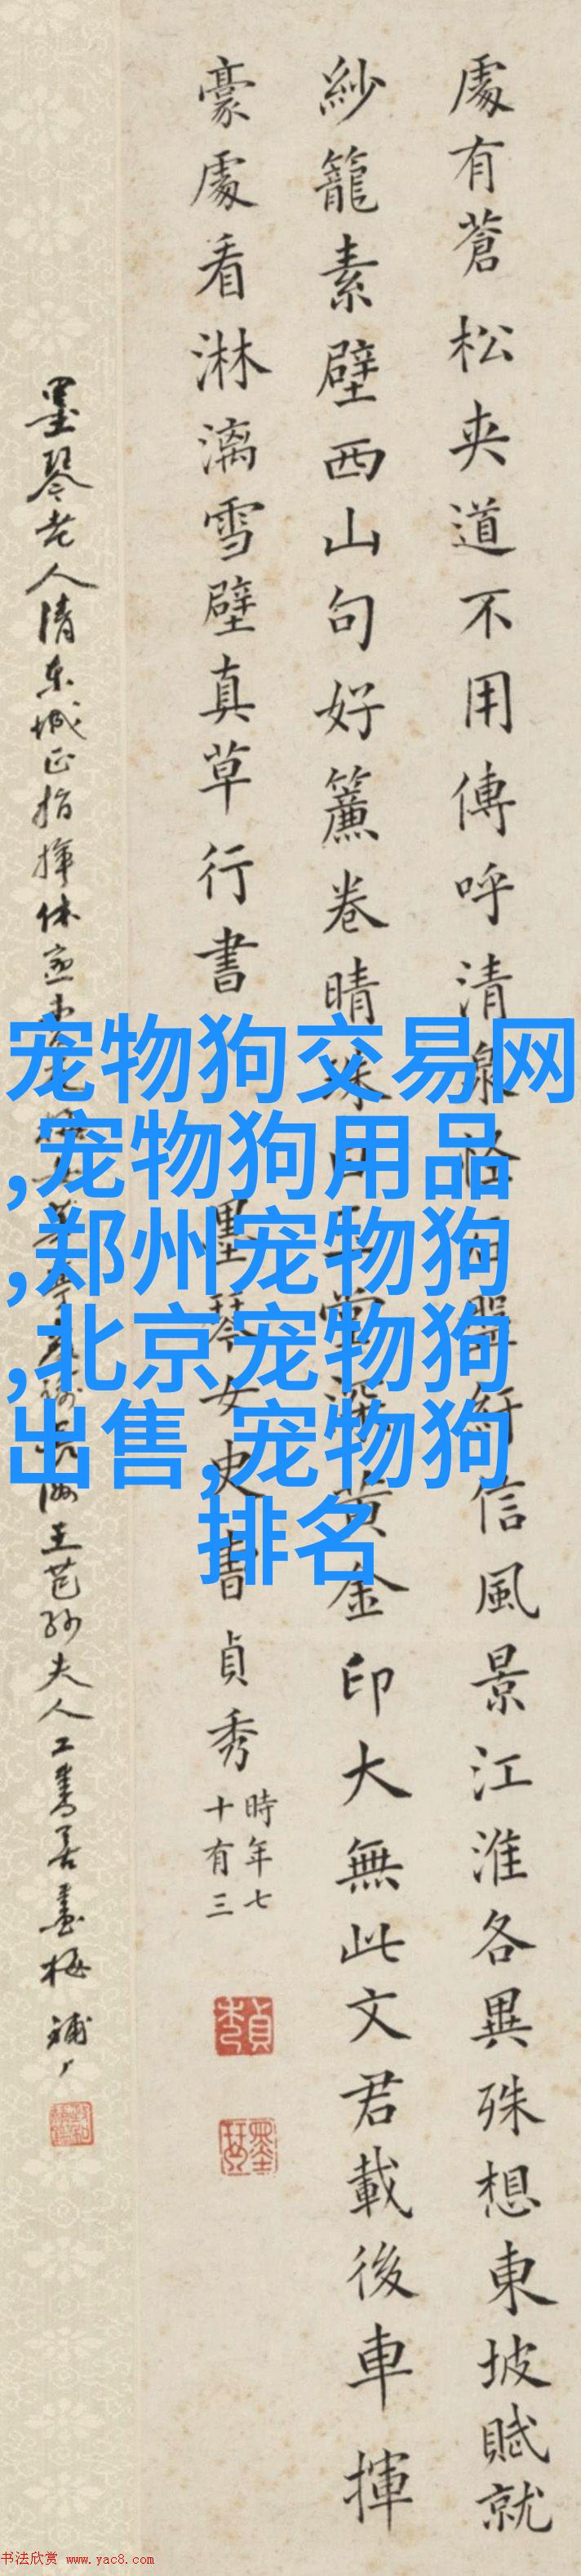 處有蒼松夾道不用傳呼清泉怪石盤紆信風景江淮各異殊想東坡賦就
紗籠素壁西山句好簾卷晴珠白玉堂深黃金印大無此文君載後車揮
豪處看淋漓雪壁真草行書
墨琴女史書貞秀
時年七
十有三
墨琴老人清東城正指揮休
海王芑孫夫人工書善畫梅
宠物狗交易网
,宠物狗用品
,郑州宠物狗
,北京宠物狗
出售,宠物狗
排名
书法欣赏 www.yac8.com